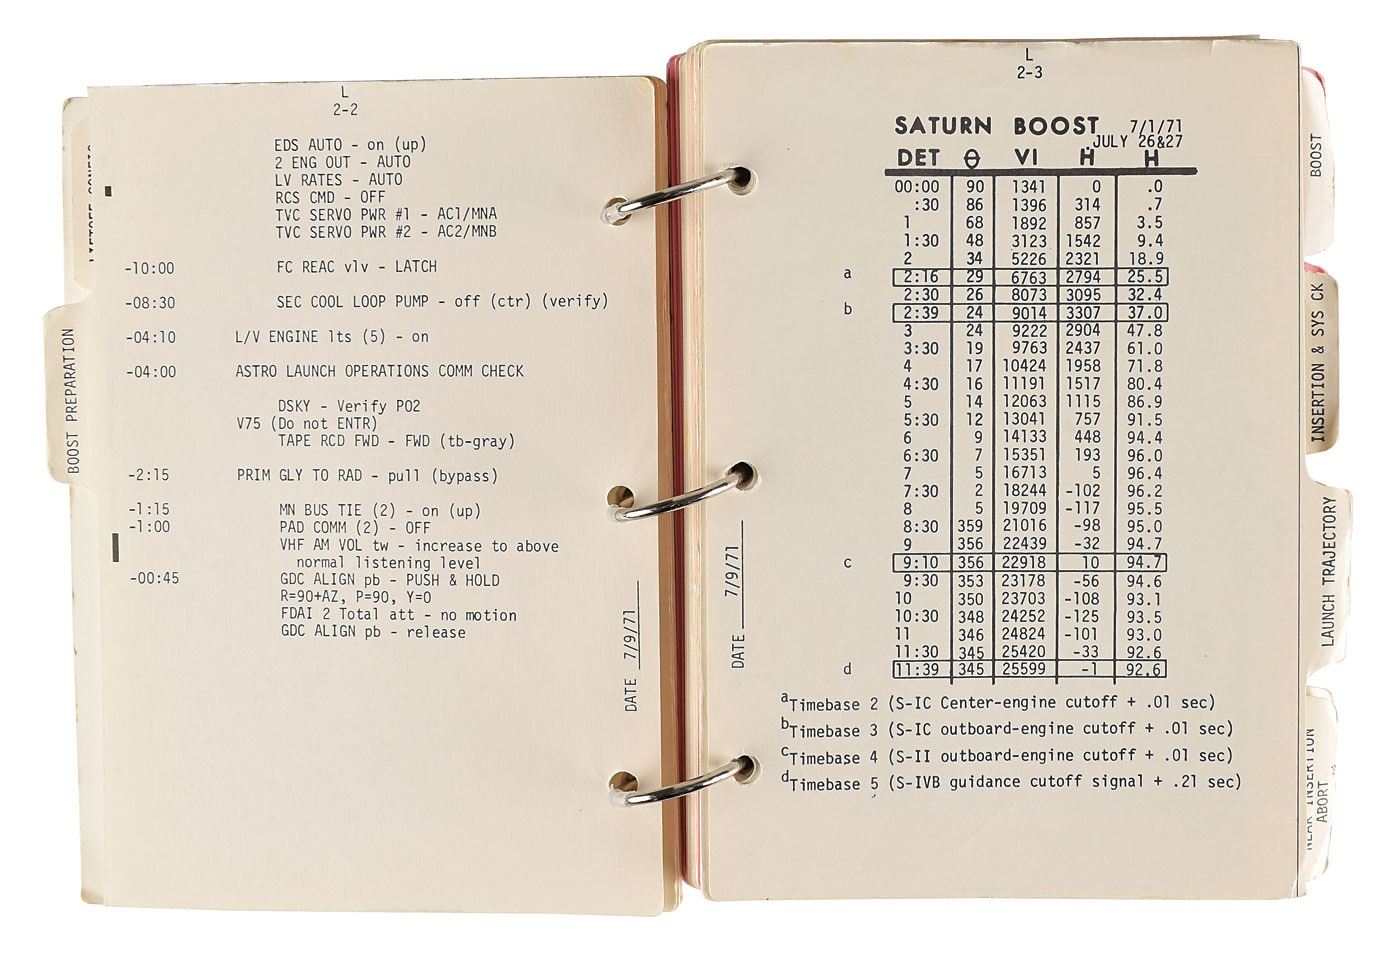 L
2-2
EDS AUTO - on (up)
2 ENG OUT - AUTO
LV RATES - AUTO
RCS CMD - OFF
TVC SERVO PWR #1 - AC1/MNA
TVC SERVO PWR #2 - AC2/MNB
-10:00 FC REAC vlv - LATCH
-08:30 SEC COOL LOOP PUMP - off (ctr) (verify)
-04:10 L/V ENGINE lts (5) - on
-04:00 ASTRO LAUNCH OPERATIONS COMM CHECK
DSKY - Verify P02
V75 (Do not ENTR)
TAPE RCD FWD - FWD (tb-gray)
-2:15 PRIM GLY TO RAD - pull (bypass)
-1:15 MN BUS TIE (2) - on (up)
-1:00 PAD COMM (2) - OFF
VHF AM VOL tw - increase to above
normal listening level
-00:45 GDC ALIGN pb - PUSH & HOLD
R=90+AZ, P=90, Y=0
FDAI 2 Total att - no motion
GDC ALIGN pb - release
DATE 7/9/71
BOOST PREPARATION
L
2-3
SATURN BOOST 7/1/71
JULY 26&27
DET θ VI Ḣ H
00:00 90 1341 0 .0
:30 86 1396 314 .7
1 68 1892 857 3.5
1:30 48 3123 1542 9.4
2 34 5226 2321 18.9
a 2:16 29 6763 2794 25.5
2:30 26 8073 3095 32.4
b 2:39 24 9014 3307 37.0
3 24 9222 2904 47.8
3:30 19 9763 2437 61.0
4 17 10424 1958 71.8
4:30 16 11191 1517 80.4
5 14 12063 1115 86.9
5:30 12 13041 757 91.5
6 9 14133 448 94.4
6:30 7 15351 193 96.0
7 5 16713 5 96.4
7:30 2 18244 -102 96.2
8 5 19709 -117 95.5
8:30 359 21016 -98 95.0
9 356 22439 -32 94.7
c 9:10 356 22918 10 94.7
9:30 353 23178 -56 94.6
10 350 23703 -108 93.1
10:30 348 24252 -125 93.5
11 346 24824 -101 93.0
11:30 345 25420 -33 92.6
d 11:39 345 25599 -1 92.6
aTimebase 2 (S-IC Center-engine cutoff + .01 sec)
bTimebase 3 (S-IC outboard-engine cutoff + .01 sec)
cTimebase 4 (S-II outboard-engine cutoff + .01 sec)
dTimebase 5 (S-IVB guidance cutoff signal + .21 sec)
DATE 7/9/71
BOOST
INSERTION & SYS CK
LAUNCH TRAJECTORY
NEAR INSERTION
ABORT